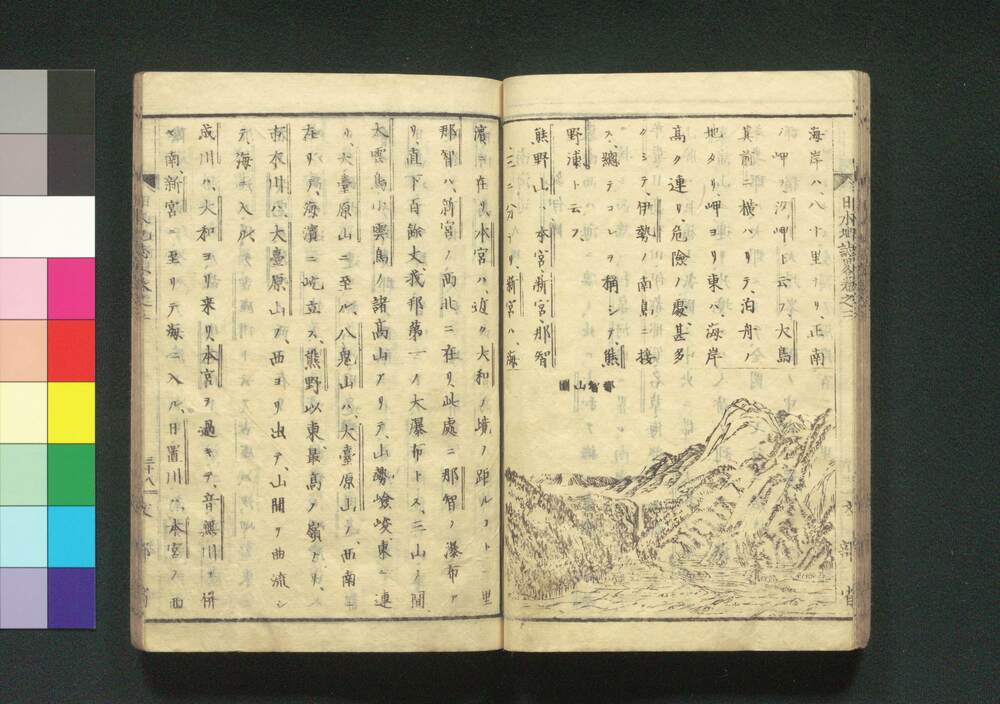 海岸ハ、八十里ナリ、正南
ノ岬ヲ汐岬ト云フ、大島
其前ニ横ハリテ、泊舟ノ
地タリ、岬ヨリ東ハ海岸
高ク連リ、危險ノ處甚多
クシテ、伊勢ノ南島ニ接
ス、總テコレヲ稱シテ、熊
野浦ト云フ、
熊野山ハ、本宮、新宮、那智
三ニ分ツ、新宮ハ、海
那智山圖
濱ニ在リ、本宮ハ、近ク大和ノ境ノ距ルコト一里
那智ハ、新宮ノ西北ニ在リ、此處ニ那智ノ瀑布ア
リ、直下百餘丈、我邦第一ノ大瀑布トス、三山ノ間
大雲鳥、小雲鳥ノ諸高山アリテ、山勢嶮峻、東ニ連
リ、大臺原山ニ至ル、八鬼山ハ、大臺原山ノ西南ニ
在リテ、海濱ニ屹立ス、熊野以東最高ノ嶺トリ、
水川ハ大臺原山ノ西ヨリ出テ、山間ヲ曲流シ
テ、海ニ入ル、
成川ハ、大和ヨリ來リ、本宮ヲ過ギテ、音無川ヲ併
セ南新宮ニ至リテ海ニ入ル、日置川ハ、本宮ノ西
日本地誌略卷之三
三十八
文部省